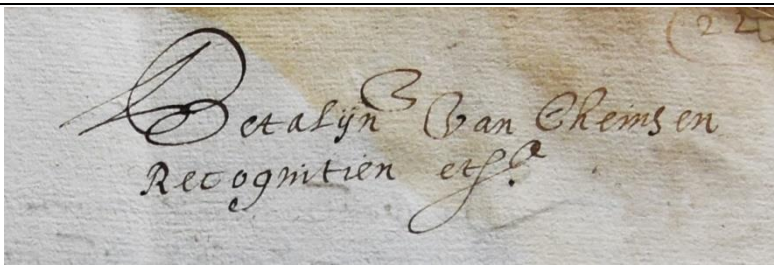 (22
Betalijn van Cheinsen
Recognitien etc.ª